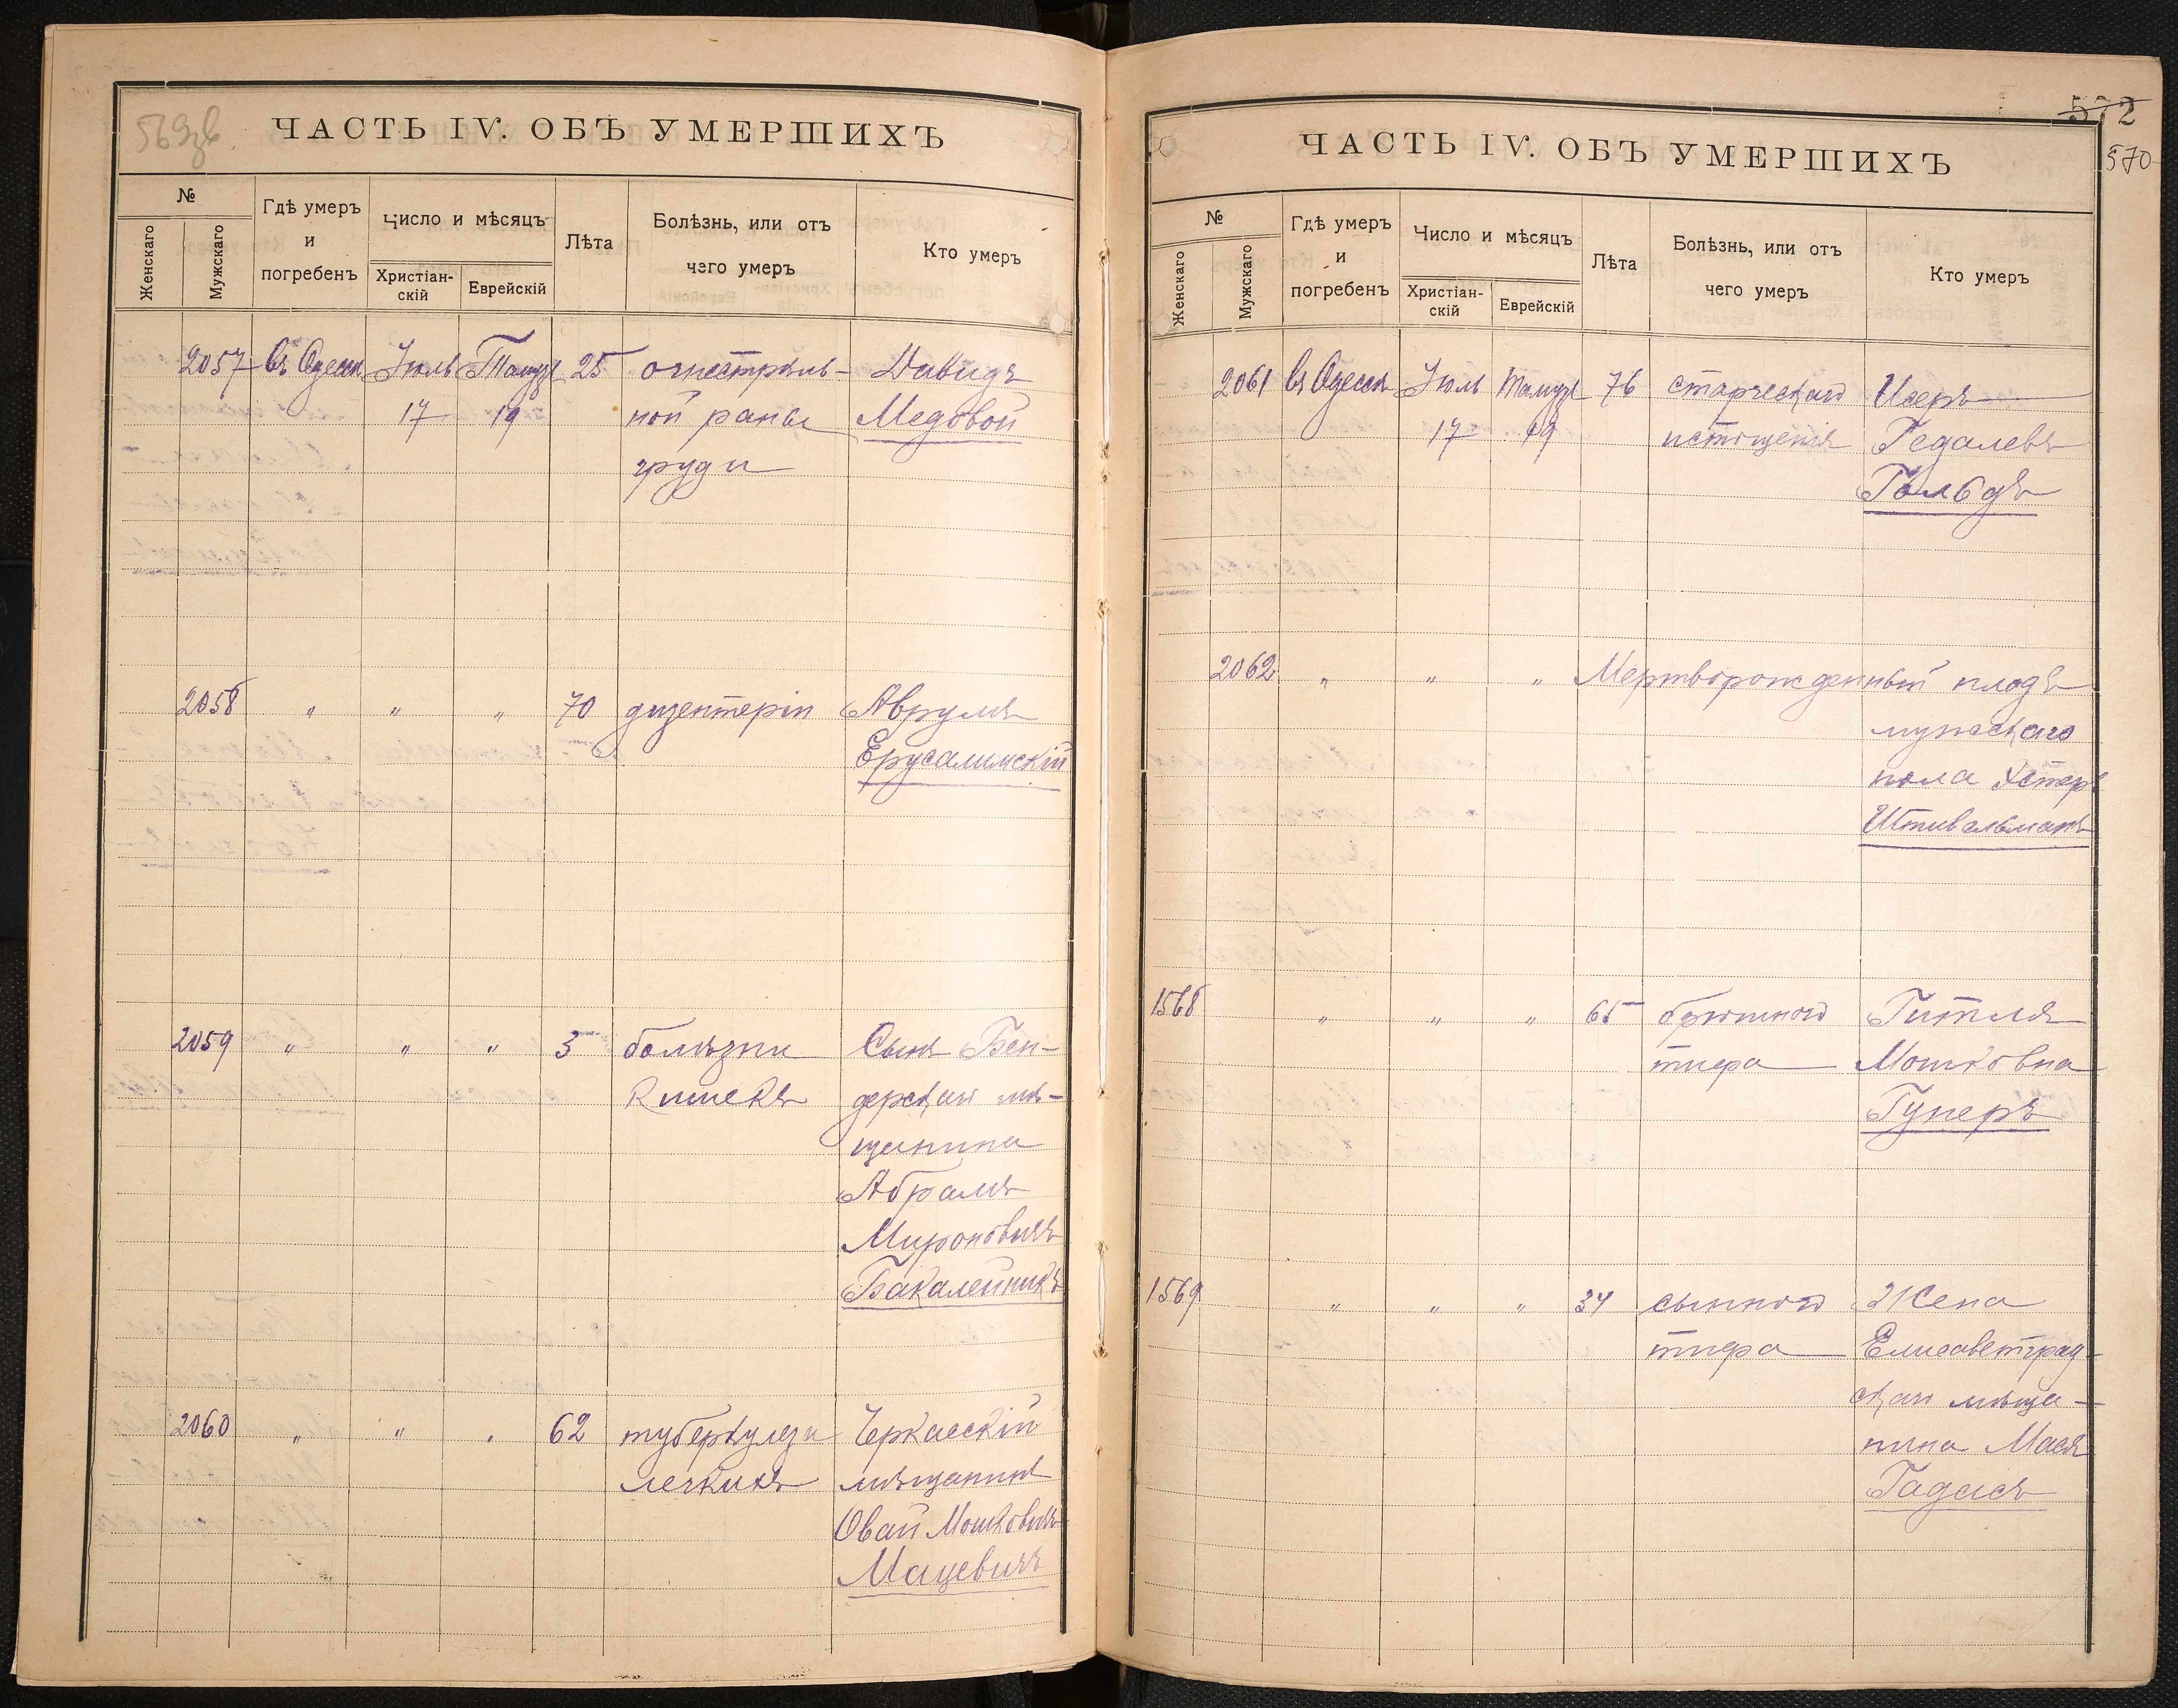 569 зв
ЧАСТЬ IV. ОБЪ УМЕРШИХЪ
№
Женскаго
Мужскаго
Гдѣ умеръ
и
погребенъ
Число и мѣсяцъ
Христіан-
скій
Еврейскій
Лѣта
Болѣзнь, или отъ
чего умеръ
Кто умеръ
2057 въ Одессѣ Іюль Тамуз 25 огнестрѣль- Давидъ
17 19 ной раны Медовой
груди
2058 " " " 70 дизентеріи Аврумъ
Ерусалимскій
2059 " " " 3 болѣзни Сынъ Бен-
кишекъ дерскаго мѣ-
щанина
Абрамъ
Мироновичъ
Бакалейникъ
2060 " " " 62 туберкулеза Черкасскій
легкихъ мѣщанинъ
Овай Мошковичъ
Мацевичъ
572
570
ЧАСТЬ IV. ОБЪ УМЕРШИХЪ
№
Женскаго
Мужскаго
Гдѣ умеръ
и
погребенъ
Число и мѣсяцъ
Христіан-
скій
Еврейскій
Лѣта
Болѣзнь, или отъ
чего умеръ
Кто умеръ
2061 въ Одессѣ Іюль Тамуз 76 старческаго Исеръ
17 19 истощенія Гедалевъ
Гольбдъ
2062 " " " Мертворожденный плодъ
мужскаго
пола Эстеръ
Штивельманъ
1568 " " " 65 брюшного Гитля
тифа Мошковна
Гуперъ
1569 " " " 34 сыпного Жена
тифа Елисаветград-
скаго мѣща-
нина Мася
Гадась